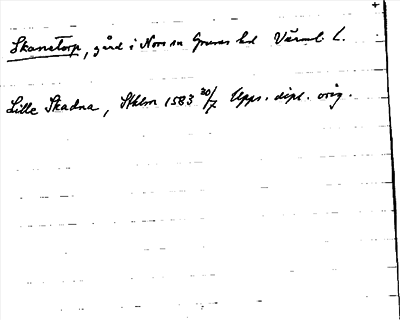 Skanstorp, gård i Nors sn Grums hd Värml. L.
Lille Skadna, Sthlm 1583 30/7 Upps. dipl. orig.